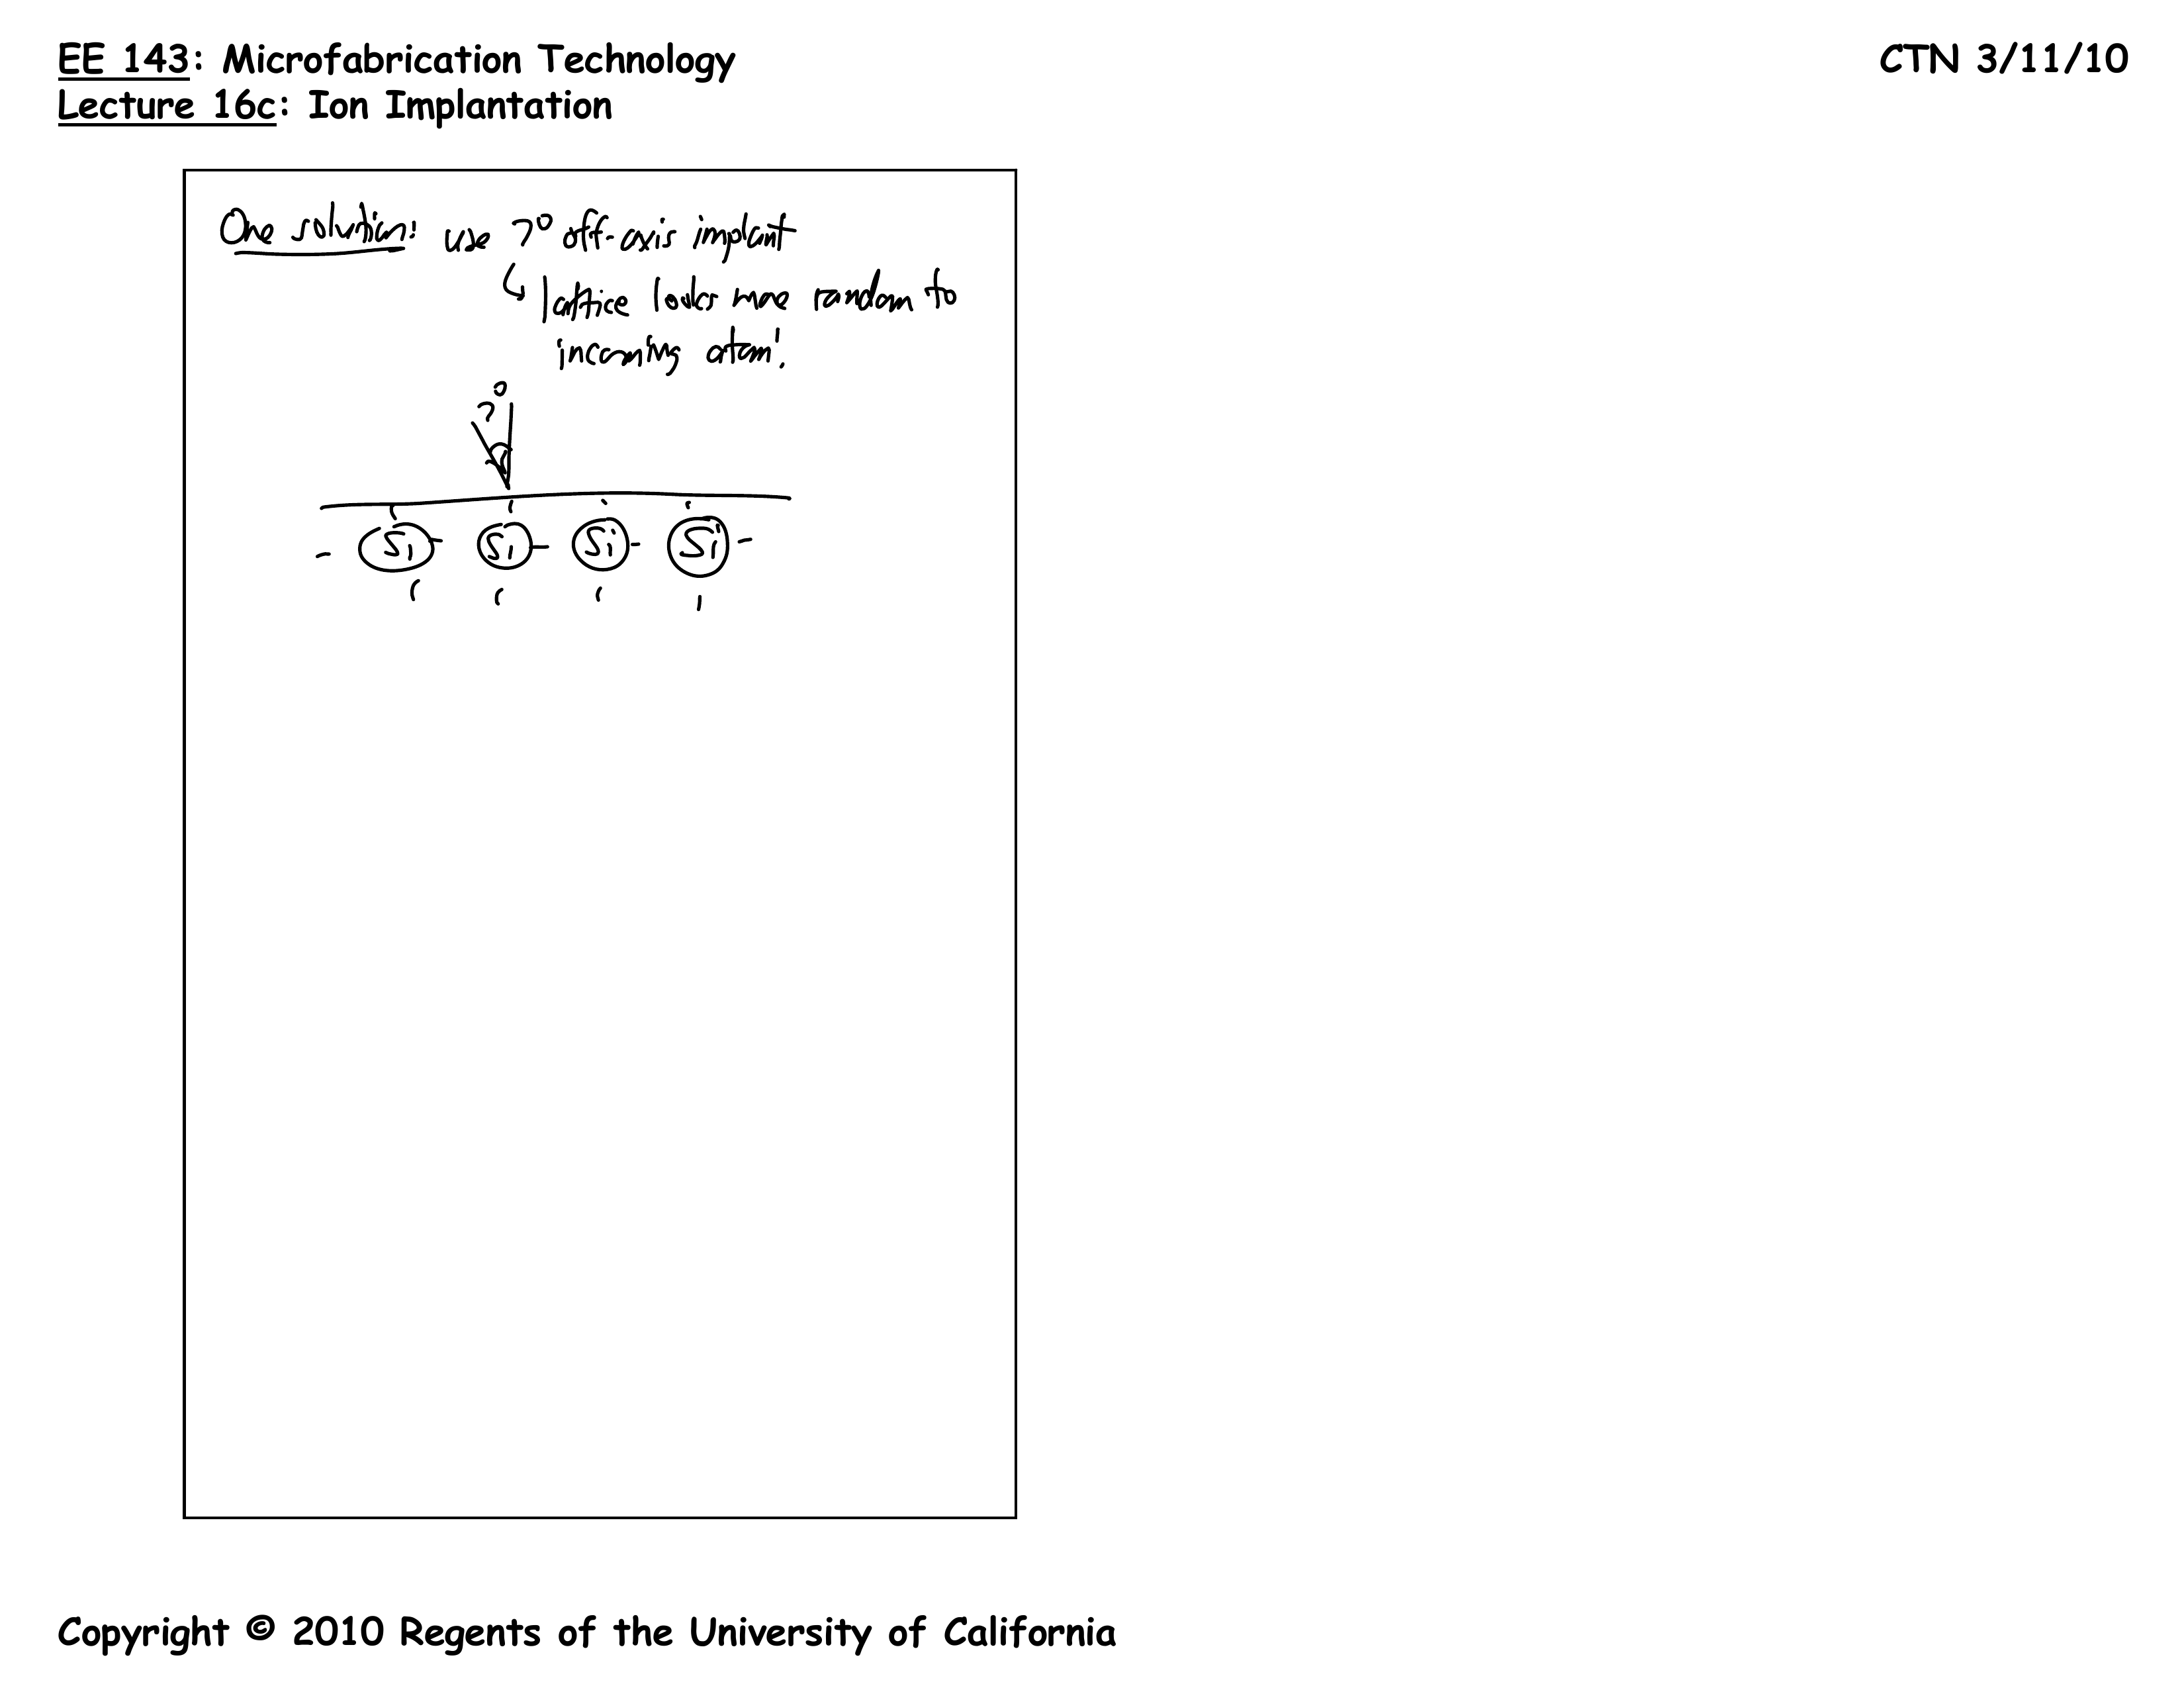 EE 143: Microfabrication Technology
CTN 3/11/10
Lecture 16c: Ion Implantation
One solution: use 7° off-axis implant
↳ lattice looks more random to
incoming atom!
7°
Si Si Si Si
Copyright © 2010 Regents of the University of California